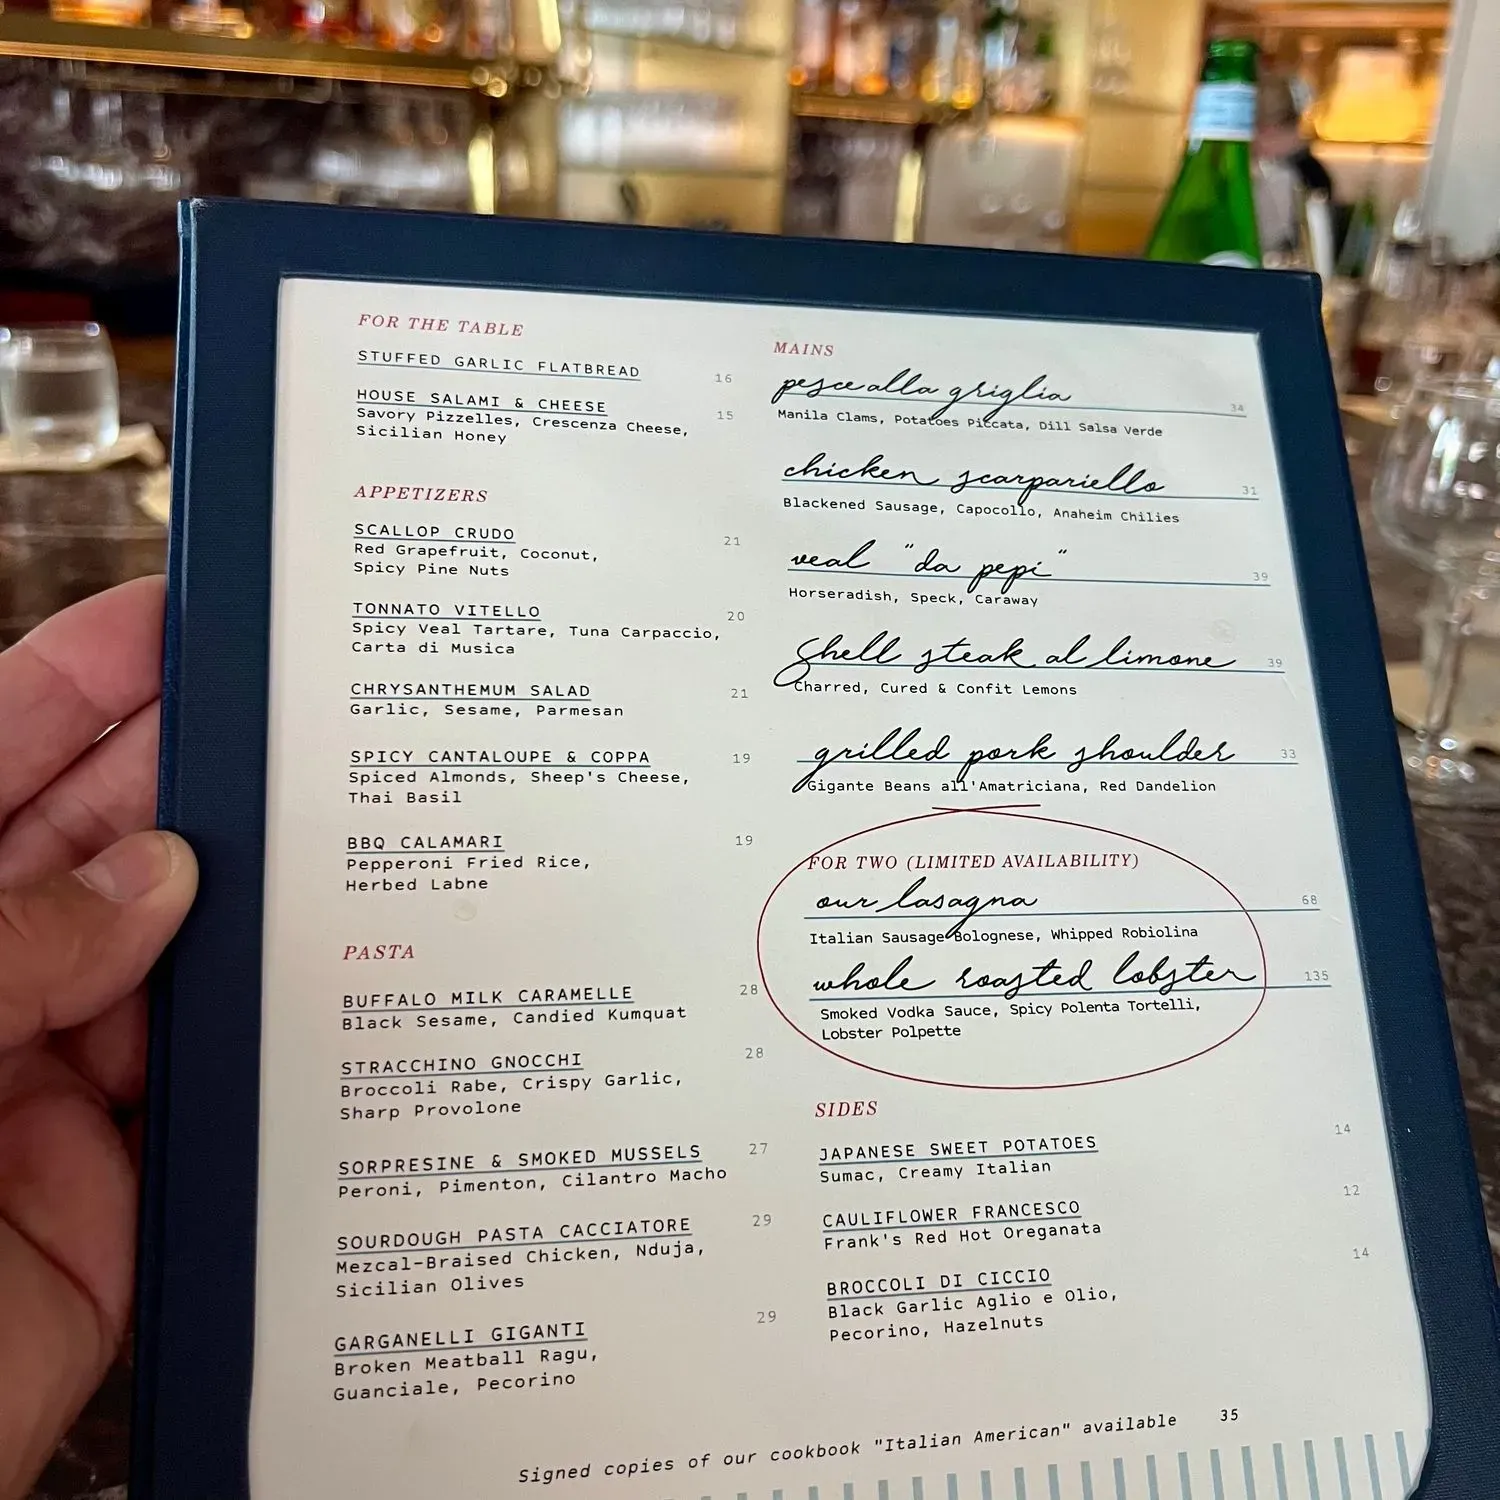 FOR THE TABLE
STUFFED GARLIC FLATBREAD 16
HOUSE SALAMI & CHEESE 15
Savory Pizzelles, Crescenza Cheese,
Sicilian Honey
APPETIZERS
SCALLOP CRUDO 21
Red Grapefruit, Coconut,
Spicy Pine Nuts
TONNATO VITELLO 20
Spicy Veal Tartare, Tuna Carpaccio,
Carta di Musica
CHRYSANTHEMUM SALAD 21
Garlic, Sesame, Parmesan
SPICY CANTALOUPE & COPPA 19
Spiced Almonds, Sheep's Cheese,
Thai Basil
BBQ CALAMARI 19
Pepperoni Fried Rice,
Herbed Labne
PASTA
BUFFALO MILK CARAMELLE 28
Black Sesame, Candied Kumquat
STRACCHINO GNOCCHI 28
Broccoli Rabe, Crispy Garlic,
Sharp Provolone
SORPRESINE & SMOKED MUSSELS 27
Peroni, Pimenton, Cilantro Macho
SOURDOUGH PASTA CACCIATORE 29
Mezcal-Braised Chicken, Nduja,
Sicilian Olives
GARGANELLI GIGANTI 29
Broken Meatball Ragu,
Guanciale, Pecorino
MAINS
pesce alla griglia 34
Manila Clams, Potatoes Piccata, Dill Salsa Verde
chicken scarpariello 31
Blackened Sausage, Capocollo, Anaheim Chilies
veal "da pepi" 39
Horseradish, Speck, Caraway
Shell steak al limone 39
Charred, Cured & Confit Lemons
grilled pork shoulder 33
Gigante Beans all'Amatriciana, Red Dandelion
FOR TWO (LIMITED AVAILABILITY)
our lasagna 68
Italian Sausage Bolognese, Whipped Robiolina
whole roasted lobster 135
Smoked Vodka Sauce, Spicy Polenta Tortelli,
Lobster Polpette
SIDES
JAPANESE SWEET POTATOES 14
Sumac, Creamy Italian
CAULIFLOWER FRANCESCO 12
Frank's Red Hot Oreganata
BROCCOLI DI CICCIO 14
Black Garlic Aglio e Olio,
Pecorino, Hazelnuts
Signed copies of our cookbook "Italian American" available 35